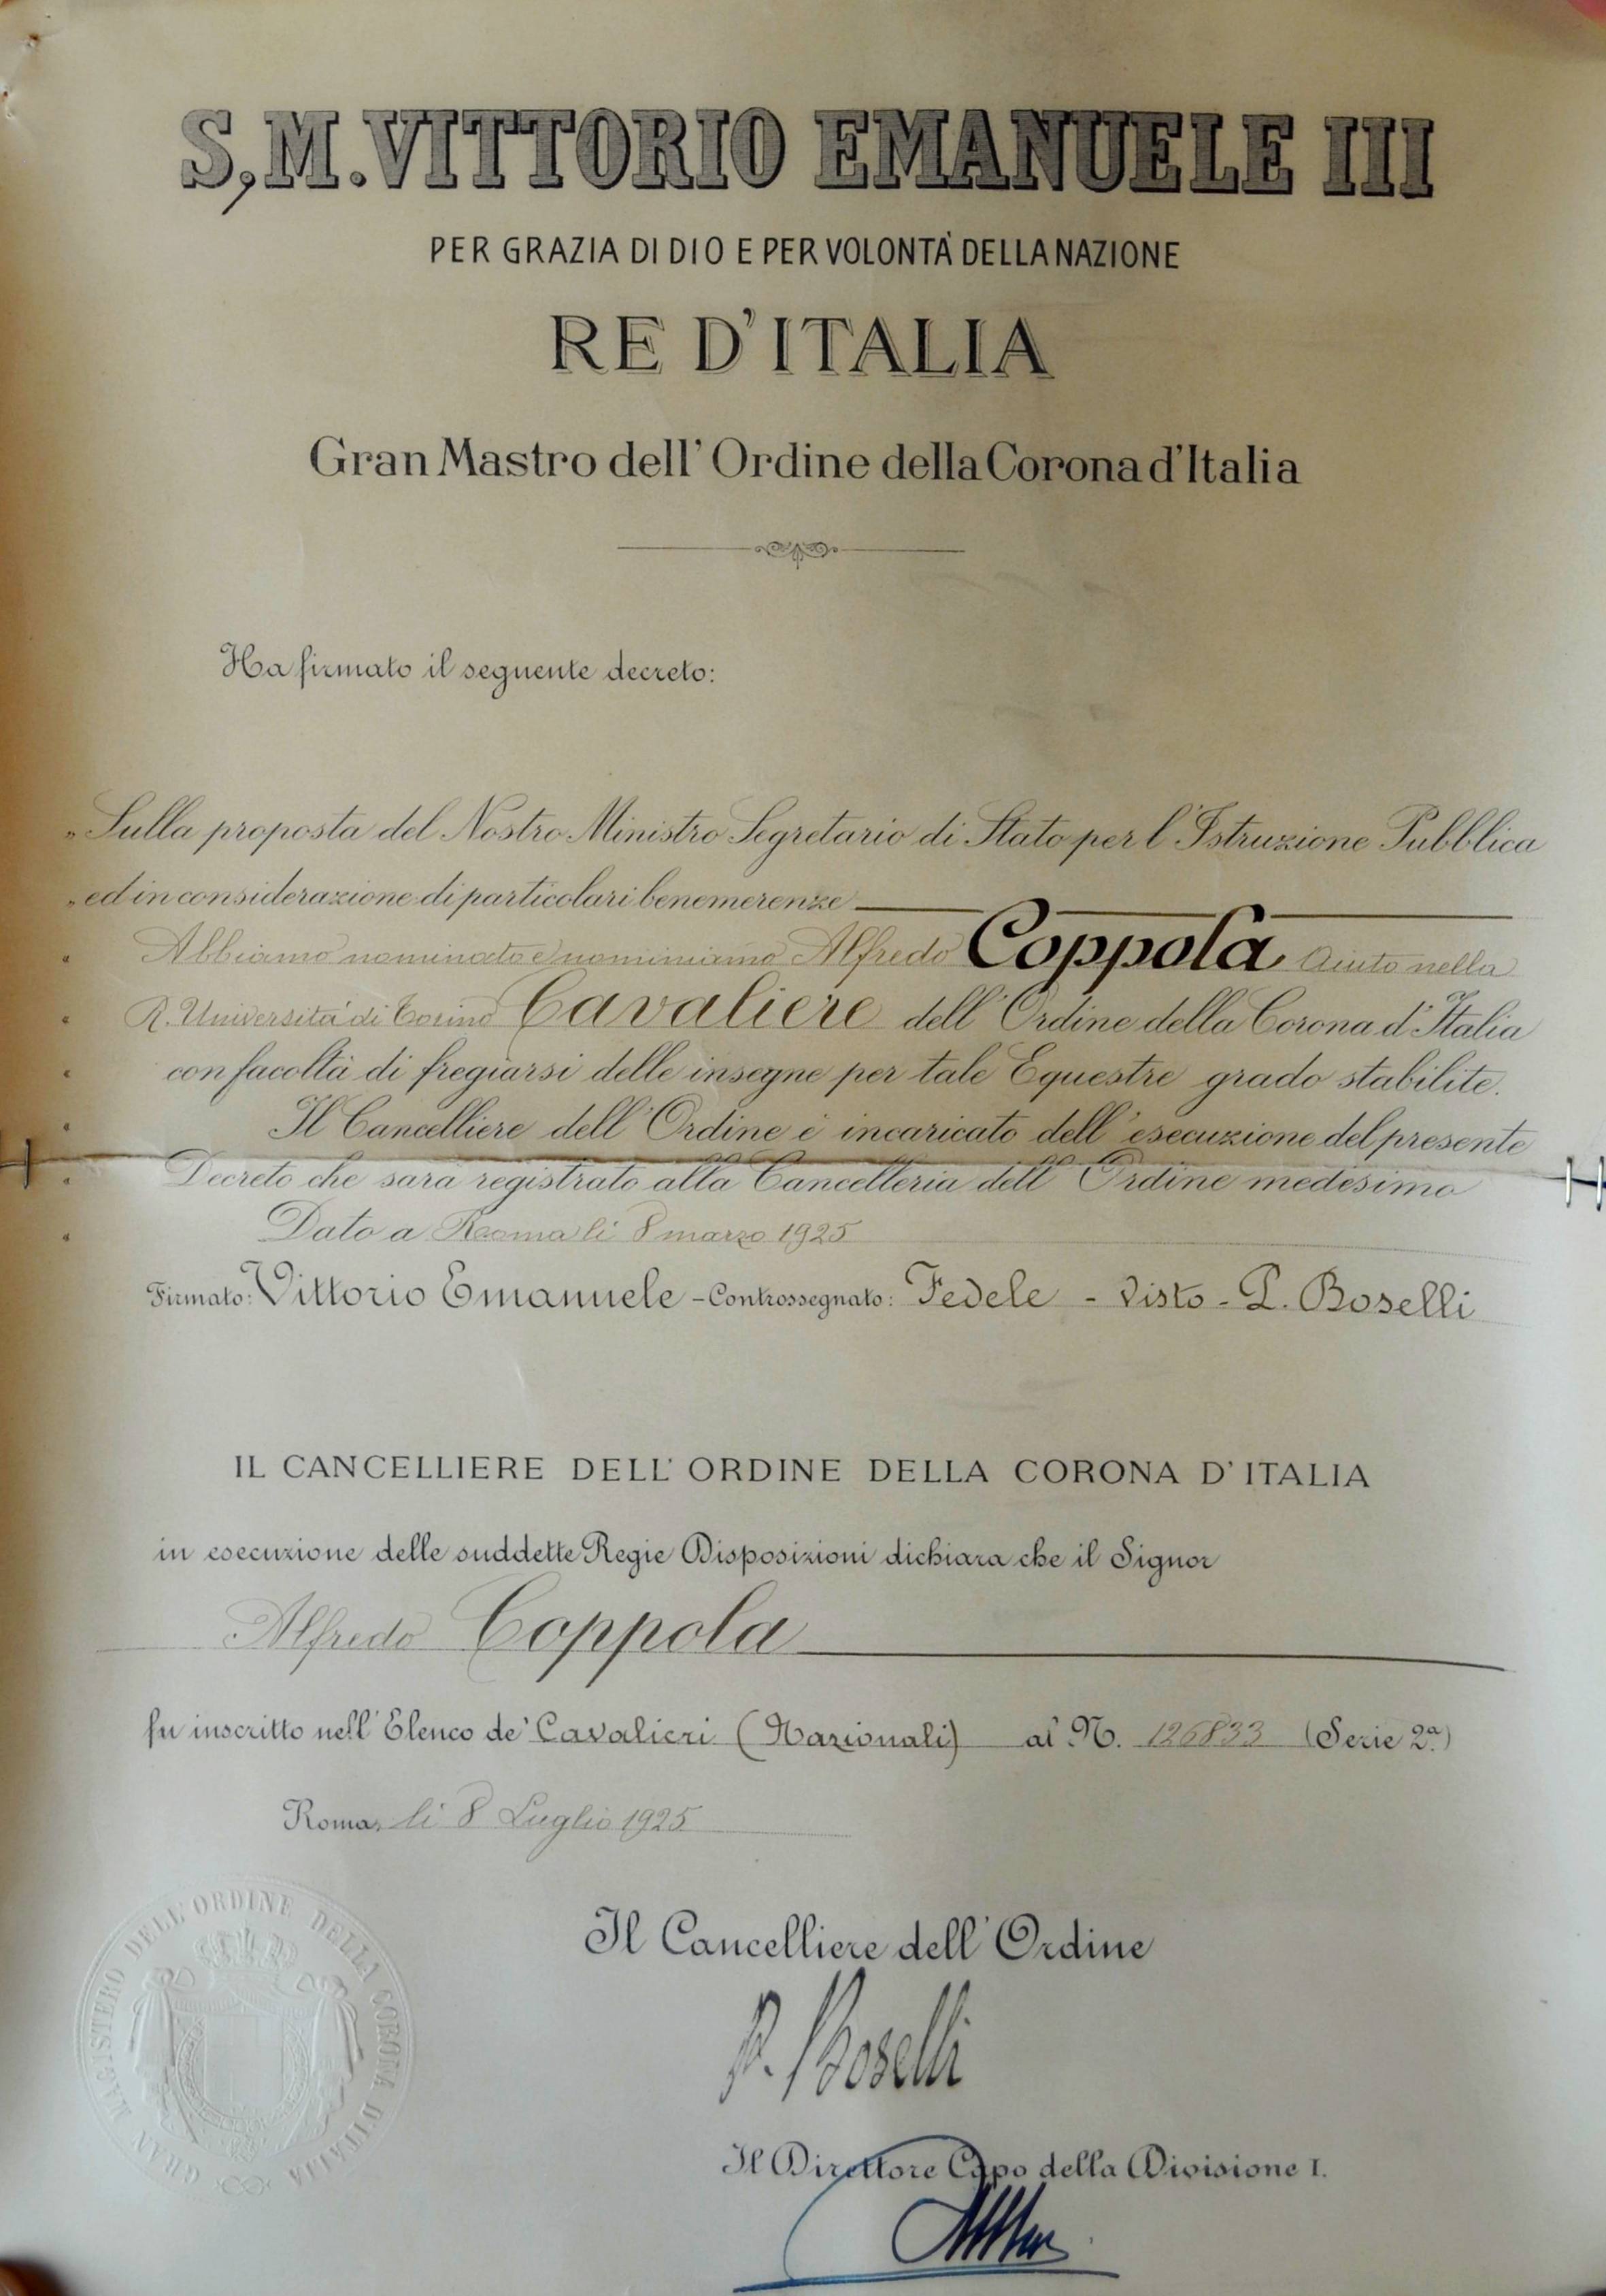 S, M. VITTORIO EMANUELE III
PER GRAZIA DI DIO E PER VOLONTÀ DELLA NAZIONE
RE D'ITALIA
Gran Mastro dell'Ordine della Corona d'Italia
Ha firmato il seguente decreto:
„ Sulla proposta del Nostro Ministro Segretario di Stato per l'Istruzione Pubblica
„ ed in considerazione di particolari benemerenze
“ Abbiamo nominato e nominiamo Alfredo Coppola Aiuto nella
“ R. Università di Torino Cavaliere dell'Ordine della Corona d'Italia
“ con facoltà di fregiarsi delle insegne per tale Equestre grado stabilite.
“ Il Cancelliere dell'Ordine è incaricato dell'esecuzione del presente
“ Decreto che sarà registrato alla Cancelleria dell'Ordine medesimo
“ Dato a Roma li 8 marzo 1925
Firmato: Vittorio Emanuele - Controssegnato: Fedele - Visto - P. Boselli
IL CANCELLIERE DELL'ORDINE DELLA CORONA D'ITALIA
in esecuzione delle suddette Regie Disposizioni dichiara che il Signor
Alfredo Coppola
fu inscritto nell'Elenco de' Cavalieri (Nazionali) al N. 126833 (Serie 2ª)
Roma, li 8 Luglio 1925
GRAN MAGISTERO DELL'ORDINE DELLA CORONA D'ITALIA
Il Cancelliere dell'Ordine
P. Boselli
Il Direttore Capo della Divisione I.